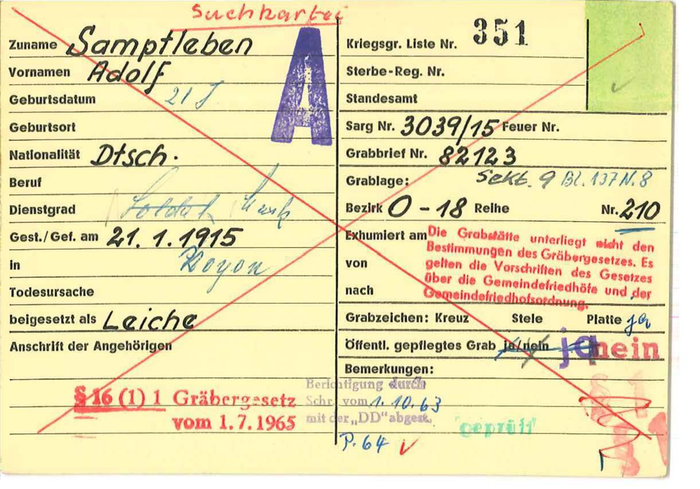 Suchkartei
Zuname Sampfleben
Vornamen Adolf
Geburtsdatum 21 J
Geburtsort
Nationalität Dtsch.
Beruf
Dienstgrad Soldat
Gest./Gef. am 21. 1. 1915
in Noyon
Todesursache
beigesetzt als Leiche
Anschrift der Angehörigen
A
§ 16 (1) 1 Gräbergesetz
vom 1. 7. 1965
Kriegsgr. Liste Nr. 351
Sterbe-Reg. Nr.
Standesamt
Sarg Nr. 3039/15 Feuer Nr.
Grabbrief Nr. 82123
Grablage: Sekt. 9 Bl. 137 N. 8
Bezirk O - 18 Reihe Nr. 210
Exhumiert am
von
nach
Die Grabstätte unterliegt nicht den
Bestimmungen des Gräbergesetzes. Es
gelten die Vorschriften des Gesetzes
über die Gemeindefriedhöfe und der
Gemeindefriedhofsordnung.
Grabzeichen: Kreuz Stele Platte ja
Öffentl. gepflegtes Grab ja/nein ja nein
Bemerkungen:
Berichtigung durch
Schr. vom 1. 10. 63
mit der „DD" abgest.
P. 64
geprüft